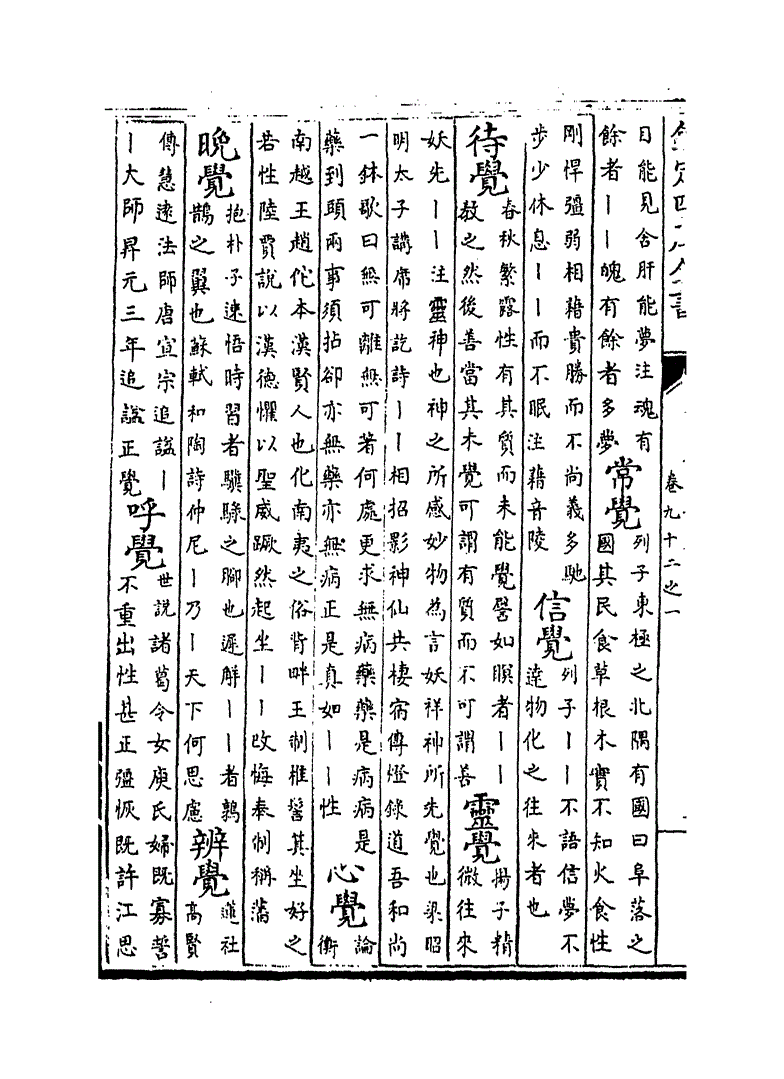 欽定四庫全書
卷九十二之一
日能見舍肝能夢注魂有
餘者丨丨魄有餘者多夢
常覺
列子東極之北隅有國曰阜落之
國其民食草根木實不知火食性
剛悍彊弱相藉貴勝而不尚義多馳
步少休息丨丨而不眠注藉音陵
信覺
列子丨丨不語信夢不
達物化之往來者也
待覺
春秋繁露性有其質而未能覺譬如瞑者丨丨
教之然後善當其未覺可謂有質而不可謂善
靈覺
揚子精
微往來
妖先丨丨注靈神也神之所感妙物為言妖祥神所先覺也梁昭
明太子講席將訖詩丨丨相招影神仙共棲宿傳燈錄道吾和尚
一鉢歌曰無可離無可著何處更求無病藥藥是病病是
藥到頭兩事須拈卻亦無藥亦無病正是真如丨丨性
心覺
論
衡
南越王趙佗本漢賢人也化南夷之俗背畔王制椎髻其坐好之
若性陸賈說以漢德懼以聖威蹶然起坐丨丨改悔奉制稱蕃
晚覺
抱朴子速悟時習者驥騄之腳也遲解丨丨者鶉
鵲之翼也蘇軾和陶詩仲尼丨乃丨天下何思慮
辨覺
蓮社
高賢
傳慧遠法師唐宣宗追諡丨
丨大師昇元三年追諡正覺
呼覺
世說諸葛令女庾氏婦既寡誓
不重出性甚正彊恢既許江思